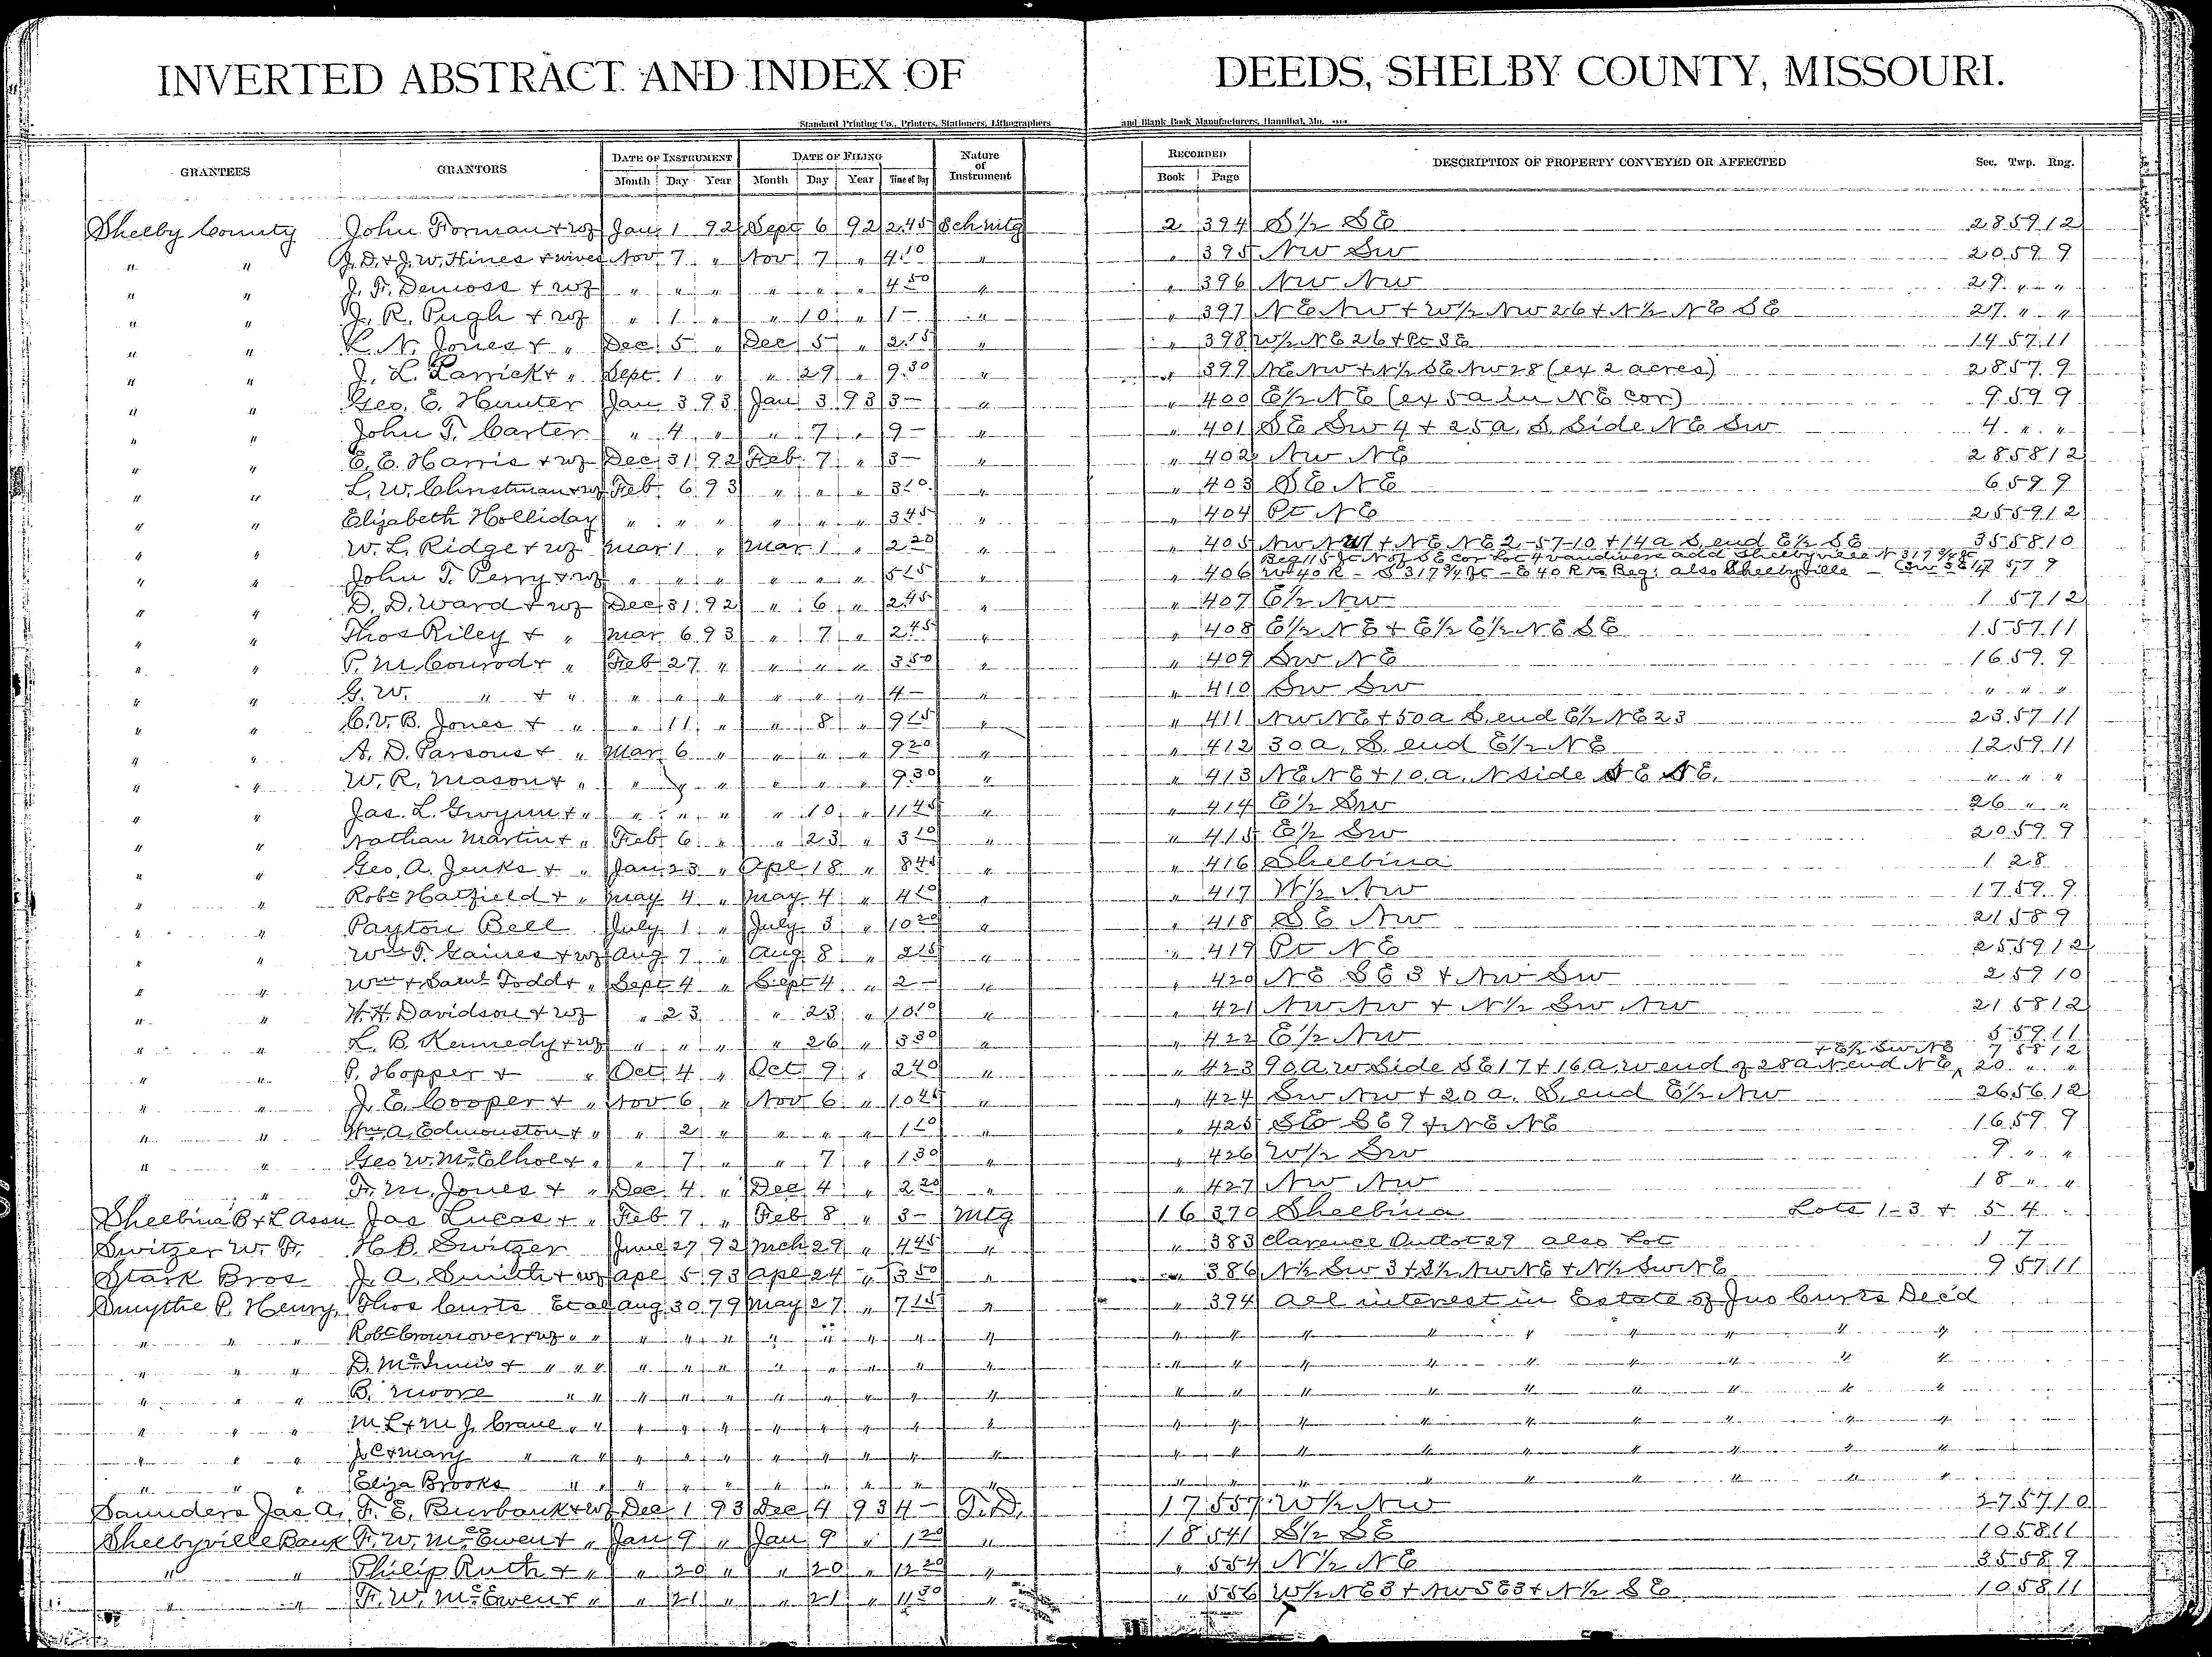 INVERTED ABSTRACT AND INDEX OF DEEDS, SHELBY COUNTY, MISSOURI.
Standard Printing Co., Printers, Stationers, Lithographers and Blank Book Manufacturers, Hannibal, Mo.
GRANTEES GRANTORS DATE OF INSTRUMENT DATE OF FILING Nature of Instrument RECORDED DESCRIPTION OF PROPERTY CONVEYED OR AFFECTED Sec. Twp. Rng.
Month Day Year Month Day Year Time of Day Book Page
Shelby County John Forman + wf Jan 1 92 Sept 6 92 2.45 Schmtg 2 394 S½ SE 28 59 12
" " J. D. + J. W. Hines + wives Nov 7 " Nov 7 " 4.10 " " 395 NW SW 20 59 9
" " J. F. Demoss + wf " " " " " " 4 50 " " 396 NW NW 29 " "
" " J. R. Pugh + wf " 1 " " 10 " 1 - " " 397 NE NW + W½ NW 26 + N½ NE SE 27 " "
" " K. N. Jones + " Dec 5 " Dec 5 " 2.15 " " 398 W½ NE 26 + Pt SE 14 57 11
" " J. L. Larrick + " Sept 1 " " 29 " 9.30 " " 399 NE NW + N½ SE NW 28 (ex 2 acres) 28 57 9
" " Geo. E. Hunter Jan 3 93 Jan 3 93 3 - " " 400 E½ NE (ex 5a in NE cor) 9 59 9
" " John T. Carter " 4 " " 7 " 9 - " " 401 SE SW 4 + 25a. S. Side NE SW 4 " "
" " E. E. Harris + wf Dec 31 92 Feb 7 " 3 - " " 402 NW NE 28 58 12
" " L. W. Christman + wf Feb 6 93 " " " 3 10 " " 403 SE NE 6 59 9
" " Elizabeth Holliday " " " " " " 3 45 " " 404 Pt NE 25 59 12
" " W. L. Ridge + wf Mar 1 " Mar 1 " 2 20 " " 405 NW NW + NE NE 2-57-10 + 14a S. end E½ SE 35 58 10
Beg 115 ft N of SE cor Lot 4 Vandivers add Shelbyville N 317¾ ft
" " John T. Perry + wf " " " " " " 5 15 " " 406 W 40 R - S 317¾ ft - E 40 R to Beg; also Shelbyville - 17 57 9
" " D. D. Ward + wf Dec 31 92 " 6 " 2.45 " " 407 E½ NW 1 57 12
" " Thos Riley + " Mar 6 93 " 7 " 2 45 " " 408 E½ NE + E½ E½ NE SE 15 57 11
" " P. M Conrod + " Feb 27 " " " " 3 50 " " 409 SW NE 16 59 9
" " G. W. " + " " " " " " " 4 - " " 410 SW SW " " "
" " C. V. B. Jones + " " 11 " " 8 " 9 15 " " 411 NW NE + 50a S. end E½ NE 23 23 57 11
" " A. D. Parsons + " Mar 6 " " " " 9 20 " " 412 30a. S. end E½ NE 12 59 11
" " W. R. Mason + " " 7 " " " " 9.30 " " 413 NE NE + 10.a. N side SE NE. " " "
" " Jas. L. Gwynn + " " " " " 10 " 11 45 " " 414 E½ SW 26 " "
" " Nathan Martin + " Feb 6 " " 23 " 3 10 " " 415 E½ SW 20 59 9
" " Geo. A. Jenks + " Jan 23 " Apl 18 " 8 45 " " 416 Shelbina 1 28
" " Robt Hatfield + " May 4 " May 4 " 4 10 " " 417 W½ NW 17 59 9
" " Payton Bell July 1 " July 3 " 10 20 " " 418 SE NW 21 58 9
" " Wm T. Gaines + wf Aug 7 " Aug 8 " 2 15 " " 419 Pt NE 25 59 12
" " Wm + Saml Todd + " Sept 4 " Sept 4 " 2 - " " 420 NE SE 3 + NW SW 2 59 10
" " H. H. Davidson + wf " 23 " 23 " 10 10 " " 421 NW NW + N½ SW NW 21 58 12
" " L. B. Kennedy + wf " " " " 26 " 3 30 " " 422 E½ NW 5 59 11
+ E½ SW NE 7 58 12
" " P. Hopper + " Oct 4 " Oct 9 " 2 40 " " 423 90.a. W Side SE 17 + 16.a. W end of 28a N end NE 20 " "
" " J. E. Cooper + " Nov 6 " Nov 6 " 10 45 " " 424 SW NW + 20a. S. end E½ NW 26 56 12
" " Wm A. Edmonston + " " 2 " " " " 1 10 " " 425 SE SE 9 + NE NE 16 59 9
" " Geo W. McElhol + " " 7 " " 7 " 1 30 " " 426 W½ SW 9 " "
" F. M. Jones + " Dec 4 " Dec 4 " 2 20 " " 427 NW NW 18 " "
Shelbina B + L Assn Jas Lucas + " Feb 7 " Feb 8 " 3 - Mtg 16 370 Shelbina Lots 1-3 + 5 4
Switzer W. F. H. B. Switzer June 27 92 Mch 29 " 4 45 " " 383 Clarence Outlot 29 also Lot 1 7
Stark Bros J. A. Smith + wf Apl 5 93 Apl 24 " 3 50 " " 386 N½ SW 3 + S½ NW NE + N½ SW NE 9 57 11
Smythe P. Henry Thos Curts Et al Aug 30 79 May 27 " 7 15 " " 394 All interest in Estate of Jno Curts Dec'd
" " " Robt Crownover + wf " " " " " " " " " " " " " " " " " " " "
" " " D. McInnis + " " " " " " " " " " " " " " " " " " " " "
" " " B. Moore " " " " " " " " " " " " " " " " " " " "
" " " M L + M J. Crane " " " " " " " " " " " " " " " " " " " "
" " " J. C + Mary " " " " " " " " " " " " " " " " " " " " "
" " " Eliza Brooks " " " " " " " " " " " " " " " " " " " "
Saunders Jas A. F. E. Burbank + wf Dec 1 93 Dec 4 93 4 - T. D. 17 557 W½ NW 27 57 10
Shelbyville Bank F. W. McEwen + " Jan 9 " Jan 9 " 1 20 " 18 541 S½ SE 10 58 11
" " Philip Ruth + " " 20 " " 20 " 12 20 " " 554 N½ NE 35 58 9
" " F. W. McEwen + " " 21 " " 21 " 11 30 " " 556 W½ NE 3 + NW SE 3 + N½ SE 10 58 11